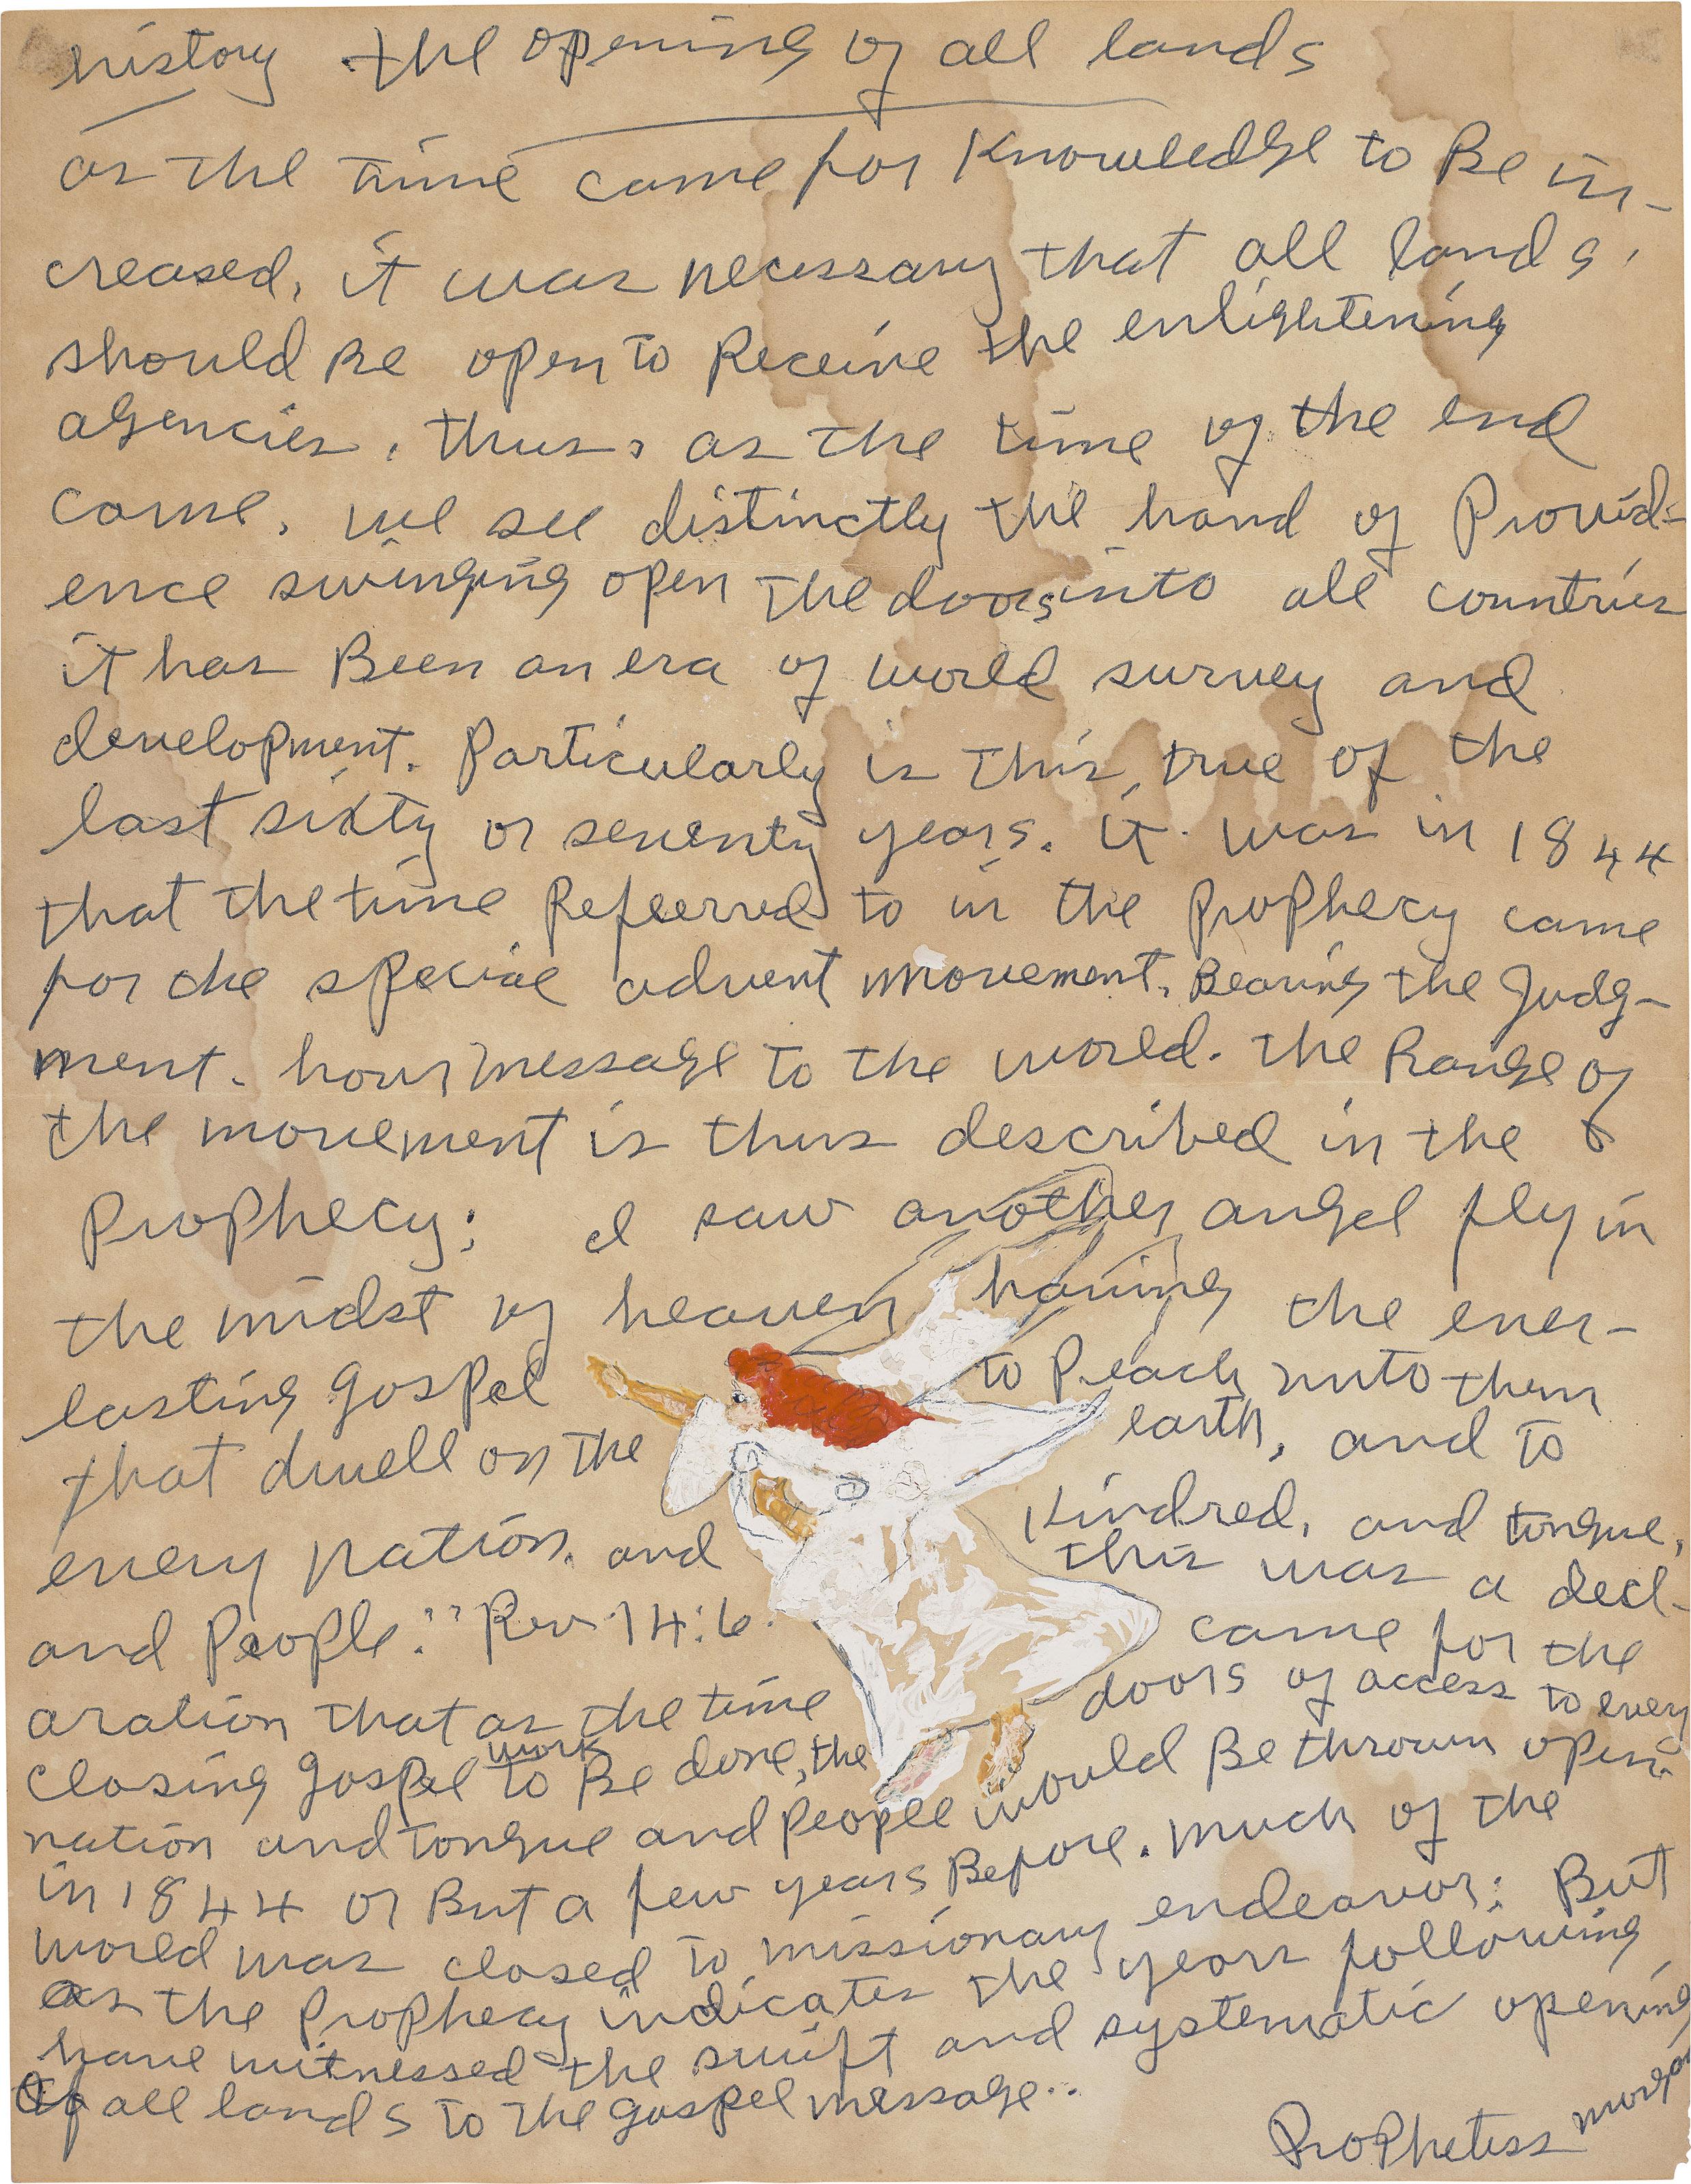 history the opening of all lands
as the time came for Knowledge to Be in-
creased, it was necessary that all lands,
should Be open to Receive the enlightening
agencies, thus, as the time of the end
came, we see distinctly the hand of Provid-
ence swinging open the doors into all countries
it has Been an era of world survey and
development. Particularly is this true of the
last sixty or seventy years. it was in 1844
that the time Refeerred to in the Prophecy came
for the special advent movement, Bearing the Judg-
ment. hour message to the world. the Range of
the movement is thus described in the
Prophecy; I saw another angel fly in
the midst of heaven having the ever-
lasting gospel to Peach unto them
that dwell on the earth, and to
every nation, and Kindred, and tongue,
and People." Rev 14:6. this was a decl-
aration that as the time came for the
closing gospel work to Be done, the doors of access to every
nation and tongue and People would Be thrown open.
in 1844 or But a few years Before. much of the
world was closed to missionary endeavor; But
as the Prophecy indicates the years following
have witnessed the swift and systematic opening
Of all lands to the gospel message..
Prophetess morgan